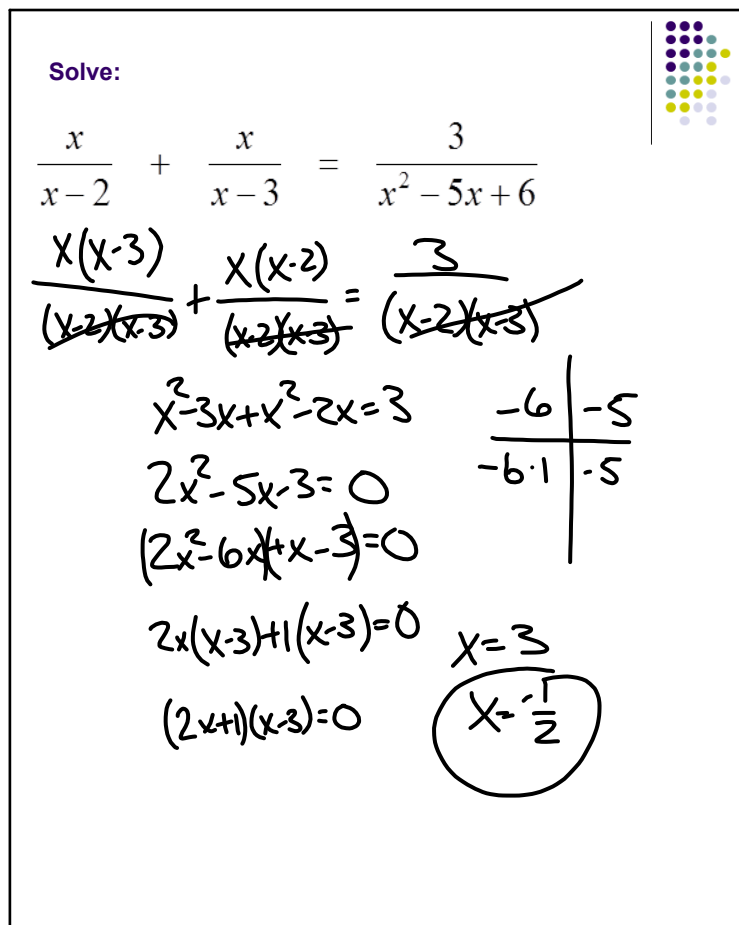 Solve:
x/(x − 2) + x/(x − 3) = 3/(x² − 5x + 6)
x(x-3)/((x-2)(x-3)) + x(x-2)/((x-2)(x-3)) = 3/((x-2)(x-3))
x²-3x+x²-2x=3
-6 | -5
2x²-5x-3=0
-6·1 | -5
(2x²-6x)(+x-3)=0
2x(x-3)+1(x-3)=0
x=3
(2x+1)(x-3)=0
x=-1/2